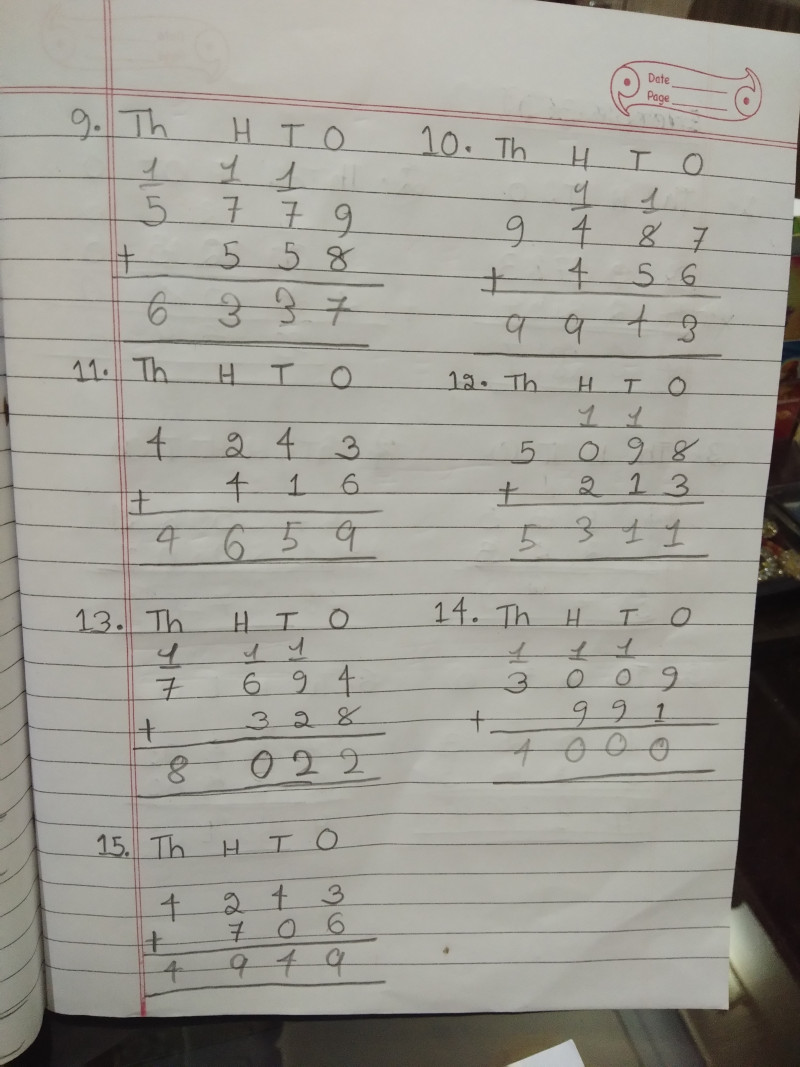 Date
Page
9. Th H T O
1 1 1
5 7 7 9
+ 5 5 8
6 3 3 7
10. Th H T O
1 1
9 4 8 7
+ 4 5 6
9 9 4 3
11. Th H T O
4 2 4 3
+ 4 1 6
4 6 5 9
12. Th H T O
1 1
5 0 9 8
+ 2 1 3
5 3 1 1
13. Th H T O
1 1 1
7 6 9 4
+ 3 2 8
8 0 2 2
14. Th H T O
1 1 1
3 0 0 9
+ 9 9 1
4 0 0 0
15. Th H T O
4 2 4 3
+ 7 0 6
4 9 4 9